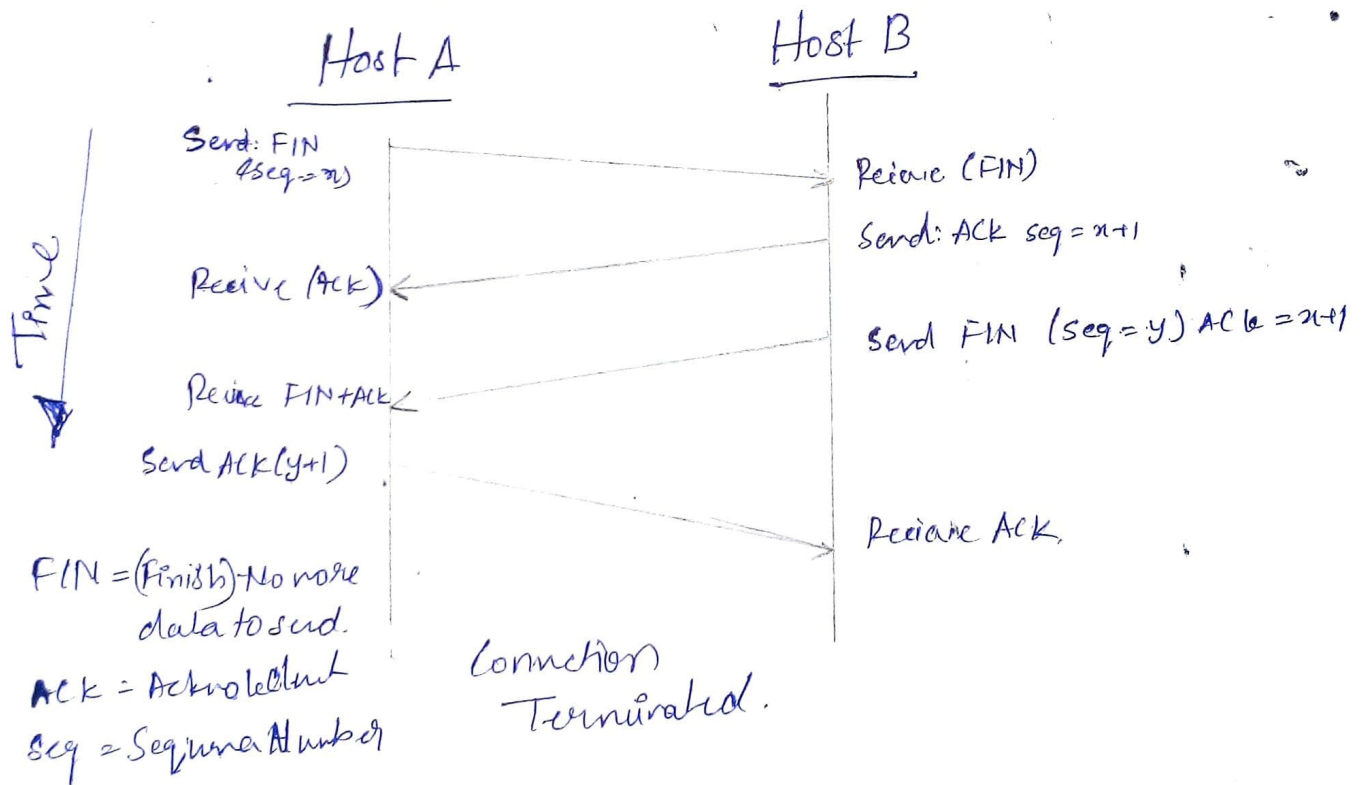 Host A
Host B
Send: FIN
(seq = x)
Reciave (FIN)
Send: ACK seq = x+1
Recive (ACK)
Send FIN (seq = y) ACk = x+1
Time
Recive FIN+ACK
Send ACK(y+1)
Reciave ACK,
FIN = (Finish)-No more
data to send.
ACK =
Seq = Number
Connction
Terminated.